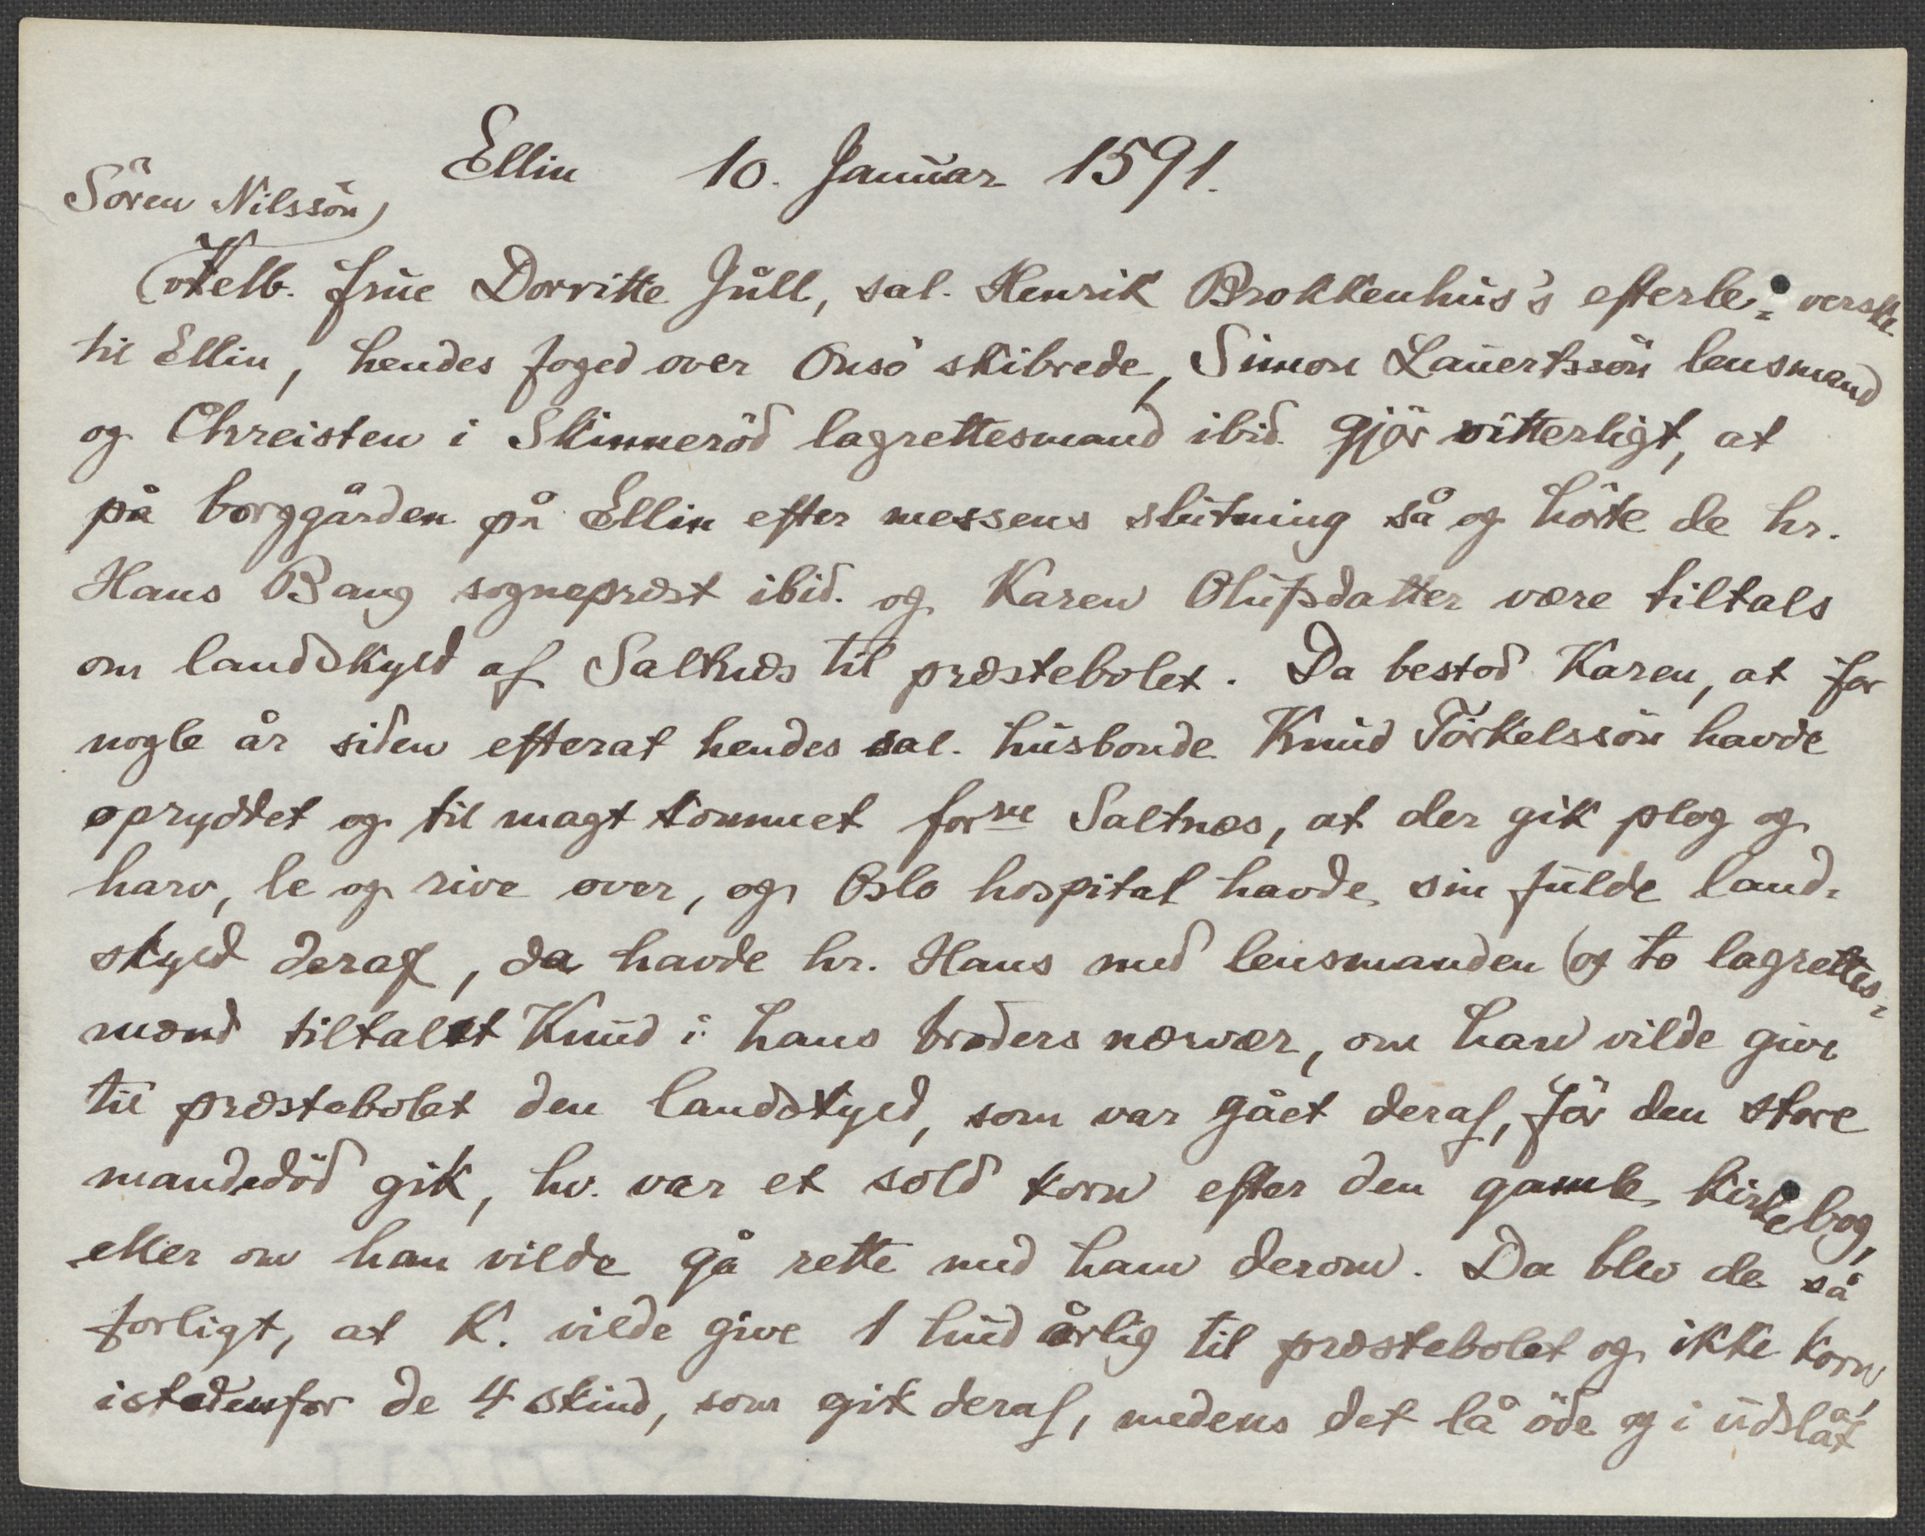 Ellin 10. Januar 1591.
Sören Nilssön,
(velb. frue Dorritte Jull, sal. Henrik Brokkenhus's efterle- verske
til Ellin, hendes foged over Onsö skibrede, Simon Lauertssön lensmand
og Chreisten i Skinneröd lagrettesmand ibid. gjör vitterligt, at
på borggården på Ellin efter messens slutning så og hörte de hr.
Hans Bang sogneprest ibid. og Karen Olufsdatter være tiltals
om landskyld af Saltnæs til præstebolet. Da bestod Karen, at for
nogle år siden efterat hendes sal. husbonde Knud Törkelssön havde
opryddet og til magt kommet forne Saltnæs, at der gik plog og
harv, le og rive over, og Oslo hospital havde sin fulde land-
skyld deraf, da havde hr. Hans med lensmanden (og to lagrettes-
mænd tiltalet Knud i hans broders nærvær, om han vilde give
til præstebolet den landskyld, som var gået deraf, för den store
mandedöd gik, hv. var et sold korn efter den gamle kirkebog,
eller om han vilde gå rette med ham derom. Da blev de så
forligt, at K. vilde give 1 hud årlig til præstebolet og ikke korn,
istedenfor de 4 skind, som gik deraf, medens det lå öde og i udslåt